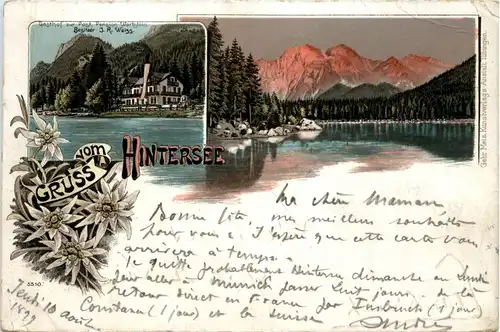 Gasthof zur Post, Pension Wartstein
Besitzer J. R. Weiss
GRUSS vom HINTERSEE
Gebr. Metz, Kunstverlags-Anstalt, Tübingen.
5510.
Ma chère Maman
Bonne fête, mes meilleurs souhaits
pour vous e. J'espère que cette carte vous
arrivera à temps.
Je quitte probablement Hintersee dimanche ou Lundi
pour aller à Munich passer huit jours - de là
retour direct en France par Innsbruck (1 jour)
Constance (1 jour) et la Suisse
André
Jeudi 10 août
1899